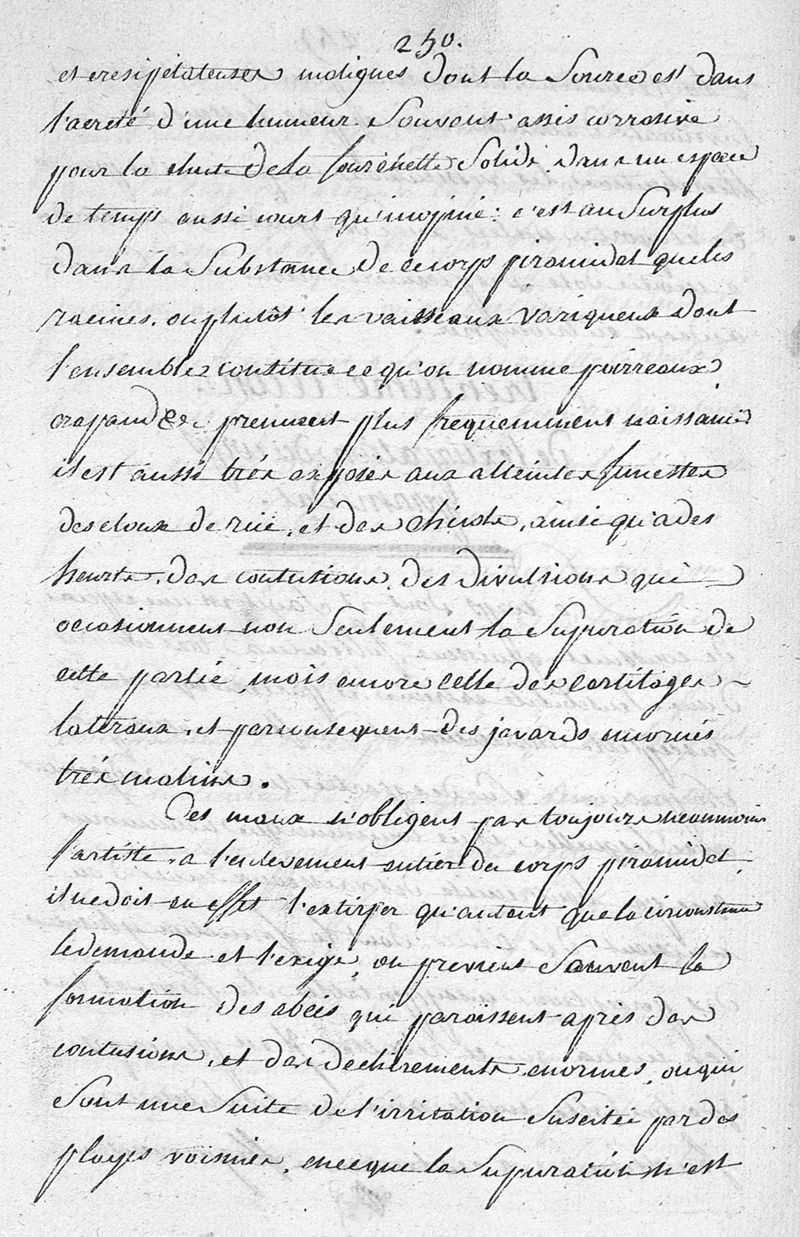 250.
et eresipelateuses malignes dont la Source est dans
l'acreté d'une humeur Souvent assis corrosive
pour la chute de la fourchette Solide, dans un espace
de temps aussi court qu'inopiné: c'est au Surplus
dans la Substance de ce corps piramidal que les
racines, ou plutôt les vaisseaux variqueux dont
l'ensemble contitue ce qu'on nomme poirreaux
crapauds &c prennent plus frequemment naissance
il est aussi trés exposés aux atteintes funestes
des cloux de rüe, et des chicots, ainsi qu'a des
heurts, des contusions des divulsions qui
occasionnent non Seulement la Supuration de
cette partie, mais encore celle des cartilages
lateraux, et par consequent des javards enormes
trés malins.
Ces maux n'obligent pas toujours neanmoins
l'artiste a l'enlevement entier du corps piramidal
il ne doit en effet l'extirper qu'autant que la circonstance
le demande et l'exige, on previent Souvent la
formation des abcés qui paroissent aprés des
contusions, et des dechirements enormes, ou qui
Sont une Suite de l'irritation Suscitée par des
playes voisines, en ce que la Supuration n'est